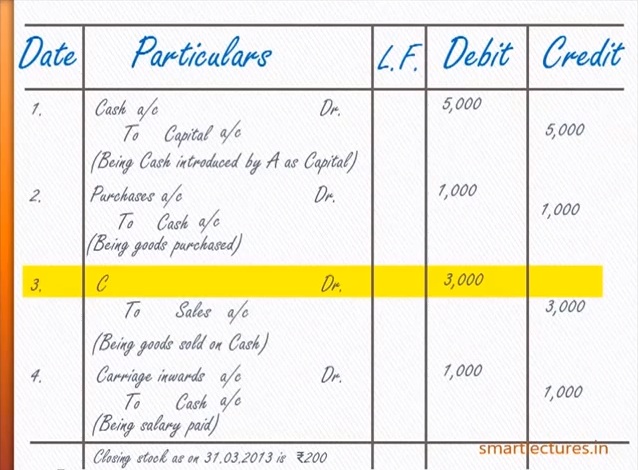 Date Particulars L.F. Debit Credit
1. Cash a/c Dr. 5,000
To Capital a/c 5,000
(Being Cash introduced by A as Capital)
2. Purchases a/c Dr. 1,000
To Cash a/c 1,000
(Being goods purchased)
3. C Dr. 3,000
To Sales a/c 3,000
(Being goods sold on Cash)
4. Carriage inwards a/c Dr. 1,000
To Cash a/c 1,000
(Being salary paid)
Closing stock as on 31.03.2013 is ₹200
smartlectures.in